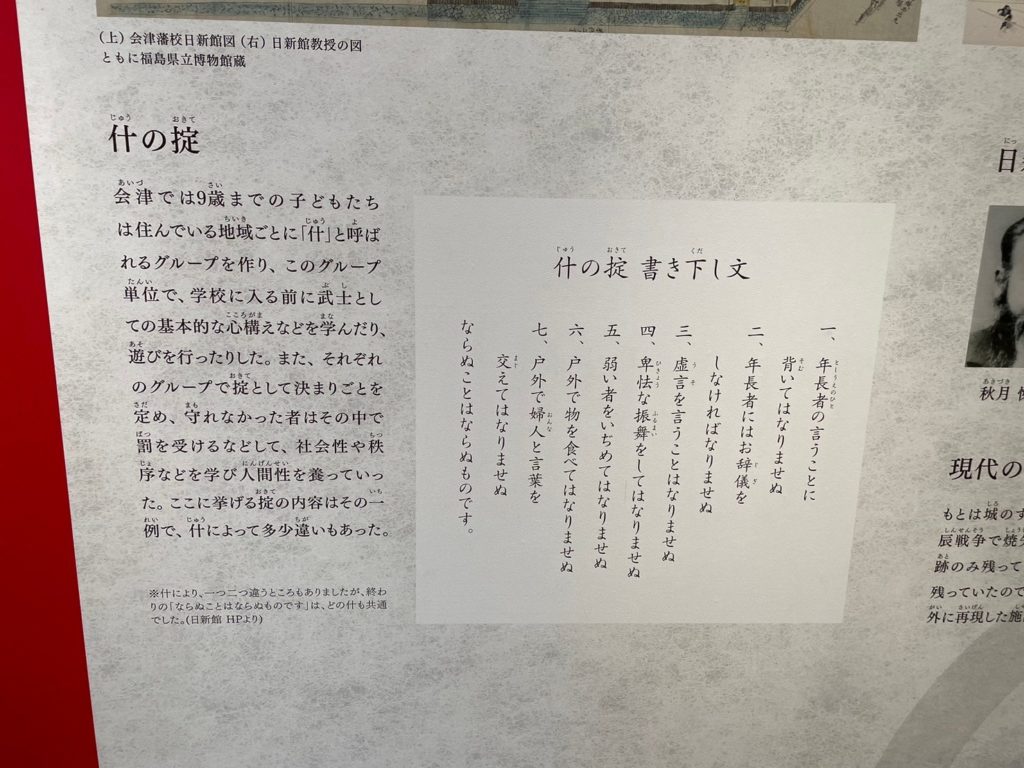 (上) 会津藩校日新館図 (右) 日新館教授の図
ともに福島県立博物館蔵
什の掟
会津では9歳までの子どもたち
は住んでいる地域ごとに「什」と呼ば
れるグループを作り、このグループ
単位で、学校に入る前に武士とし
ての基本的な心構えなどを学んだり、
遊びを行ったりした。また、それぞれ
のグループで掟として決まりごとを
定め、守れなかった者はその中で
罰を受けるなどして、社会性や秩
序などを学び人間性を養っていっ
た。ここに挙げる掟の内容はその一
例で、什によって多少違いもあった。
※什により、一つ二つ違うところもありましたが、終わ
りの「ならぬことはならぬものです」は、どの什も共通
でした。(日新館 HPより)
什の掟 書き下し文
一、年長者の言うことに
背いてはなりませぬ
二、年長者にはお辞儀を
しなければなりませぬ
三、虚言を言うことはなりませぬ
四、卑怯な振舞をしてはなりませぬ
五、弱い者をいぢめてはなりませぬ
六、戸外で物を食べてはなりませぬ
七、戸外で婦人と言葉を
交えてはなりませぬ
ならぬことはならぬものです。
秋月
現代の
もとは城のす
辰戦争で焼失
跡のみ残って
残っていたので
外に再現した施